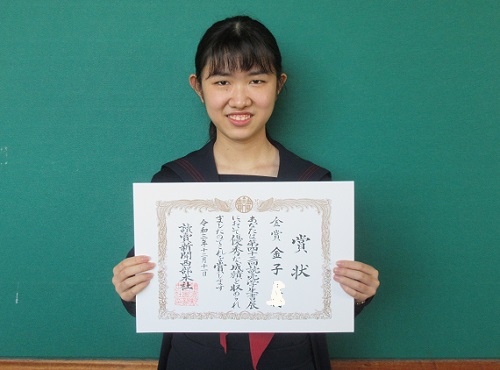 賞状
金賞 金子
あなたは第四十三回読売学生書展
において優秀な成績を収められ
ましたのでこれを賞します
令和三年十一月二日
讀賣新聞西部本社